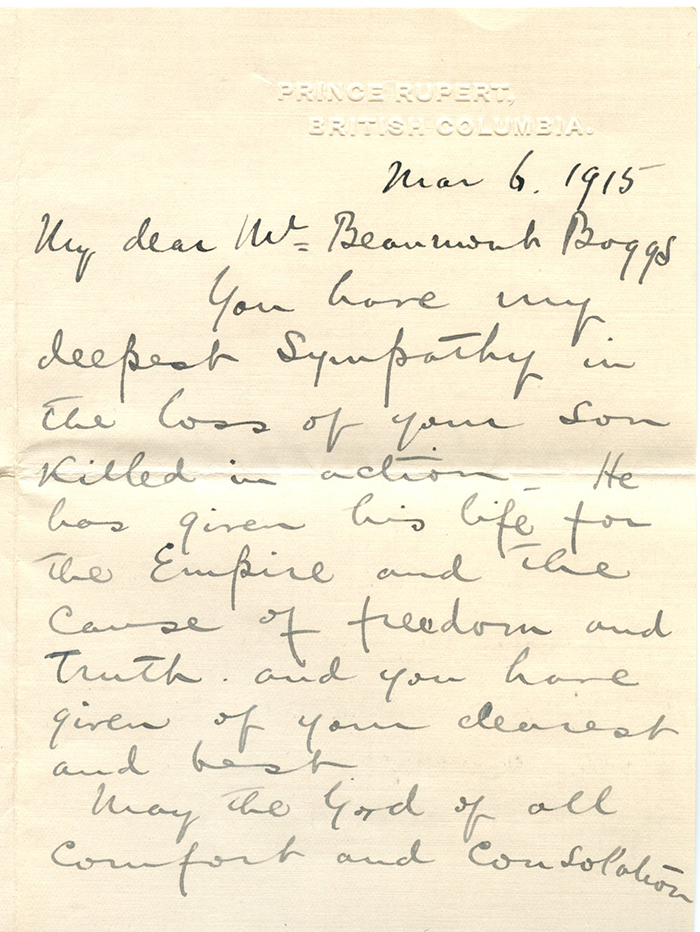 PRINCE RUPERT,
BRITISH COLUMBIA.
Mar 6. 1915
My dear Mr= Beaumont Boggs
You have my
deepest Sympathy in
the loss of your son
Killed in action_ He
has given his life for
the Empire and the
Cause of freedom and
Truth. and you have
given of your dearest
and best
May the God of all
Comfort and Consolation